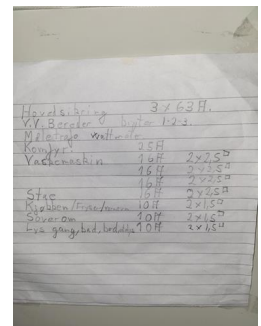 Hovedsikring 3 x 63 A.
V.V. Bereder bryter 1-2-3.
Komfyr. 25 A
Vaskemaskin 16 A 2x2,5□
16 A 2x2,5□
16 A 2x2,5□
Stue 16 A 2x2,5□
Kjøkken/Fryser 10 A 2x1,5□
Soverom 10 A 2x1,5□
Lys gang, bad, 10 A 2x1,5□